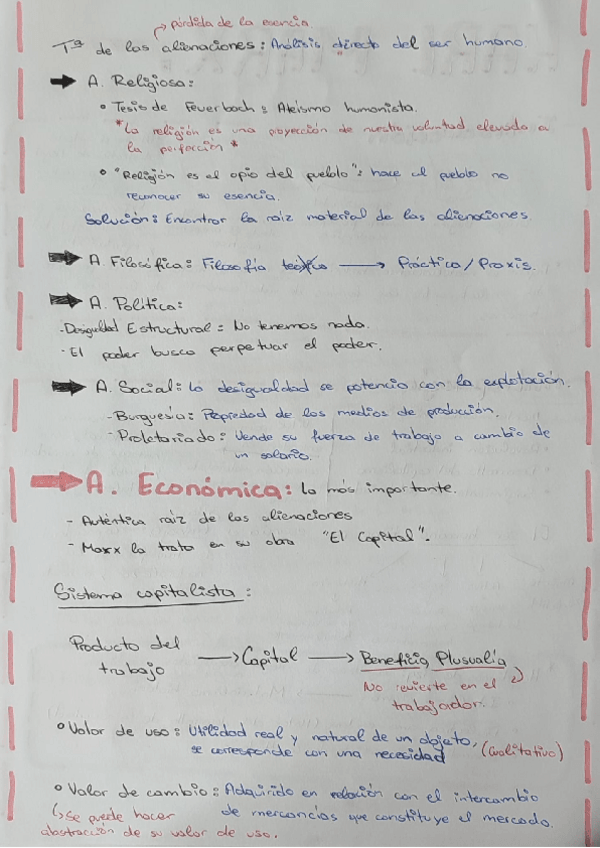 pérdida de la esencia
Tª de las alienaciones: Análisis directo del ser humano.
A. Religiosa:
Tesis de Feuerbach: Ateísmo humanista.
*La religión es una proyección de nuestra voluntad elevada a
la perfección*
"Religión es el opio del pueblo": hace al pueblo no
reconocer su esencia.
Solución: Encontrar la raíz material de las alienaciones
A. Filosófica: Filosofía → Práctica/Praxis.
A. Política:
-Desigualdad Estructural: No tenemos nada.
-El poder busca perpetuar el poder.
A. Social: la desigualdad se potencia con la explotación.
-Burguesía: Propiedad de los medios de producción.
-Proletariado: Vende su fuerza de trabajo a cambio de
un salario.
A. Económica: la más importante.
- Auténtica raíz de las alienaciones
- Marx la trata en su obra "El Capital".
Sistema capitalista:
Producto del
trabajo → Capital → Beneficio, Plusvalía
No revierte en el
trabajador.
Valor de uso: Utilidad real y natural de un objeto,
se corresponde con una necesidad (cualitativo)
Valor de cambio: Adquirido en relación con el intercambio
de mercancías que constituye el mercado.
↳ Se puede hacer
abstracción de su valor de uso.